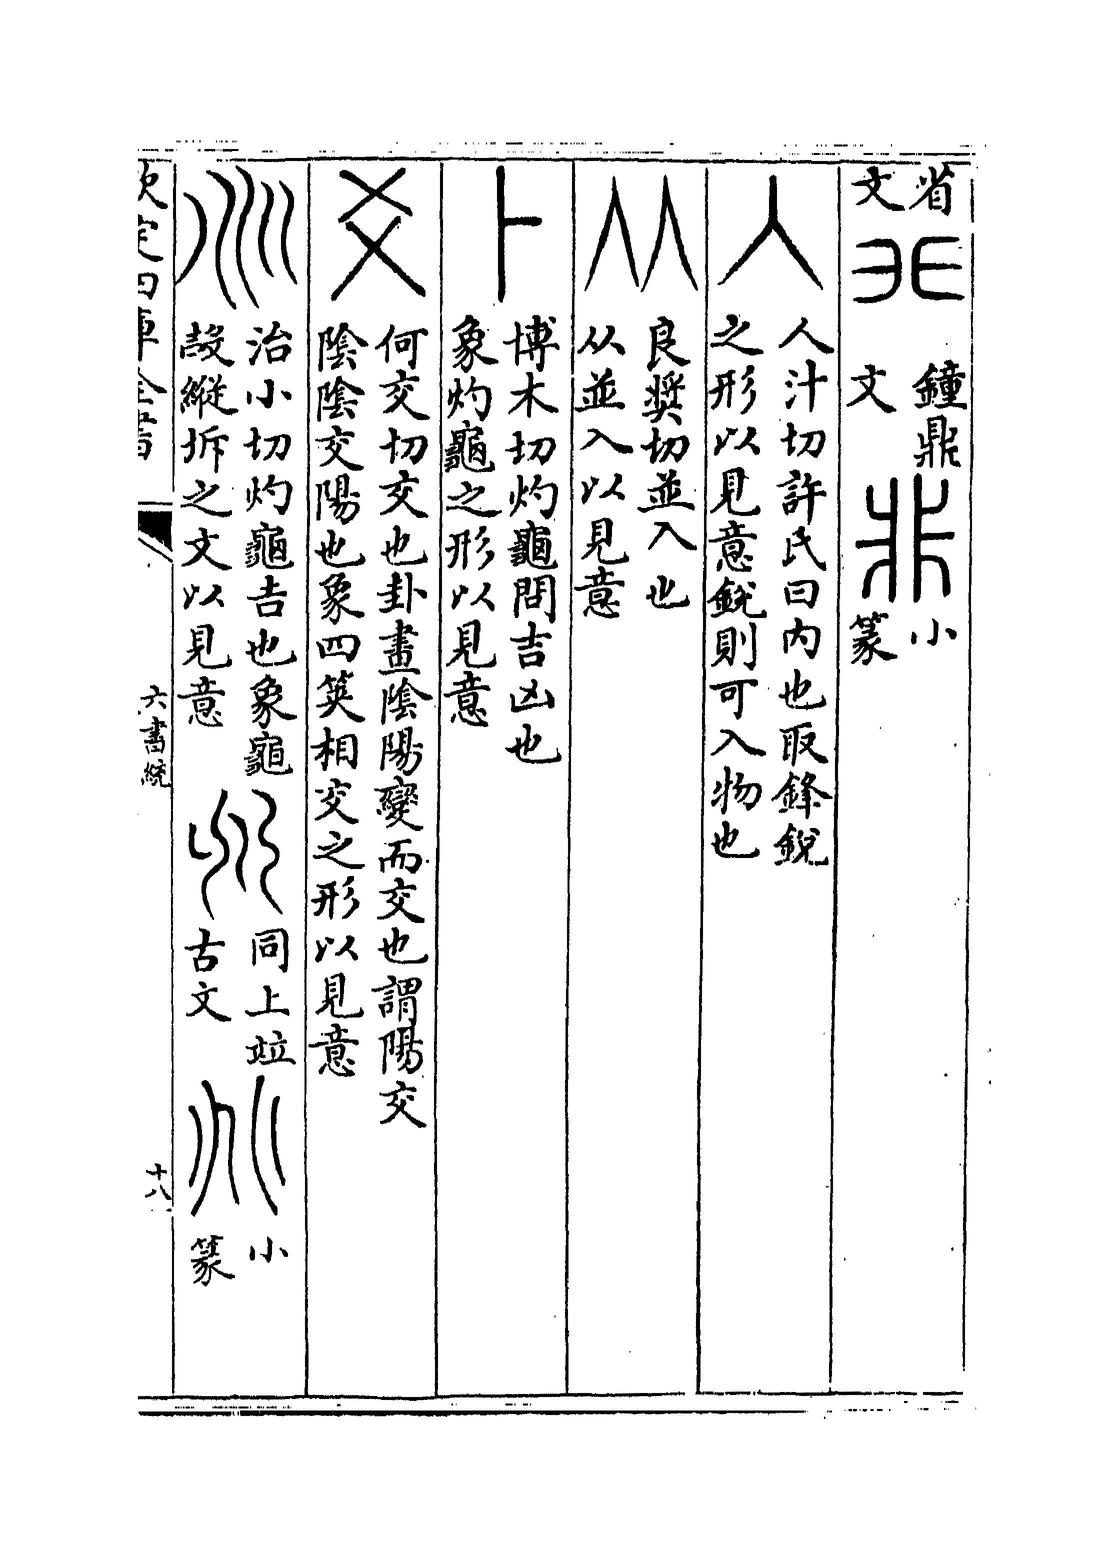 省
文
鐘鼎
文
小
篆
人汁切許氏曰内也取鋒銳
之形以見意銳則可入物也
良奨切並入也
从並入以見意
博木切灼龜問吉凶也
象灼龜之形以見意
何交切交也卦畫陰陽變而交也謂陽交
陰陰交陽也象四筴相交之形以見意
治小切灼龜吉也象龜
縱拆之文以見意
同上竝
古文
小
篆
欽定四庫全書
六書統
十八